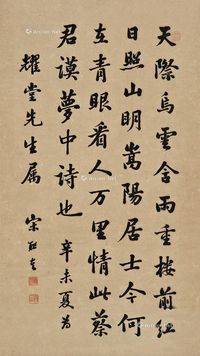 天際烏雲含雨重樓前紅
日照山明嵩陽居士今何
在青眼看人万里情此蔡
君謨夢中詩也 辛未夏為
耀堂先生属 宋联奎